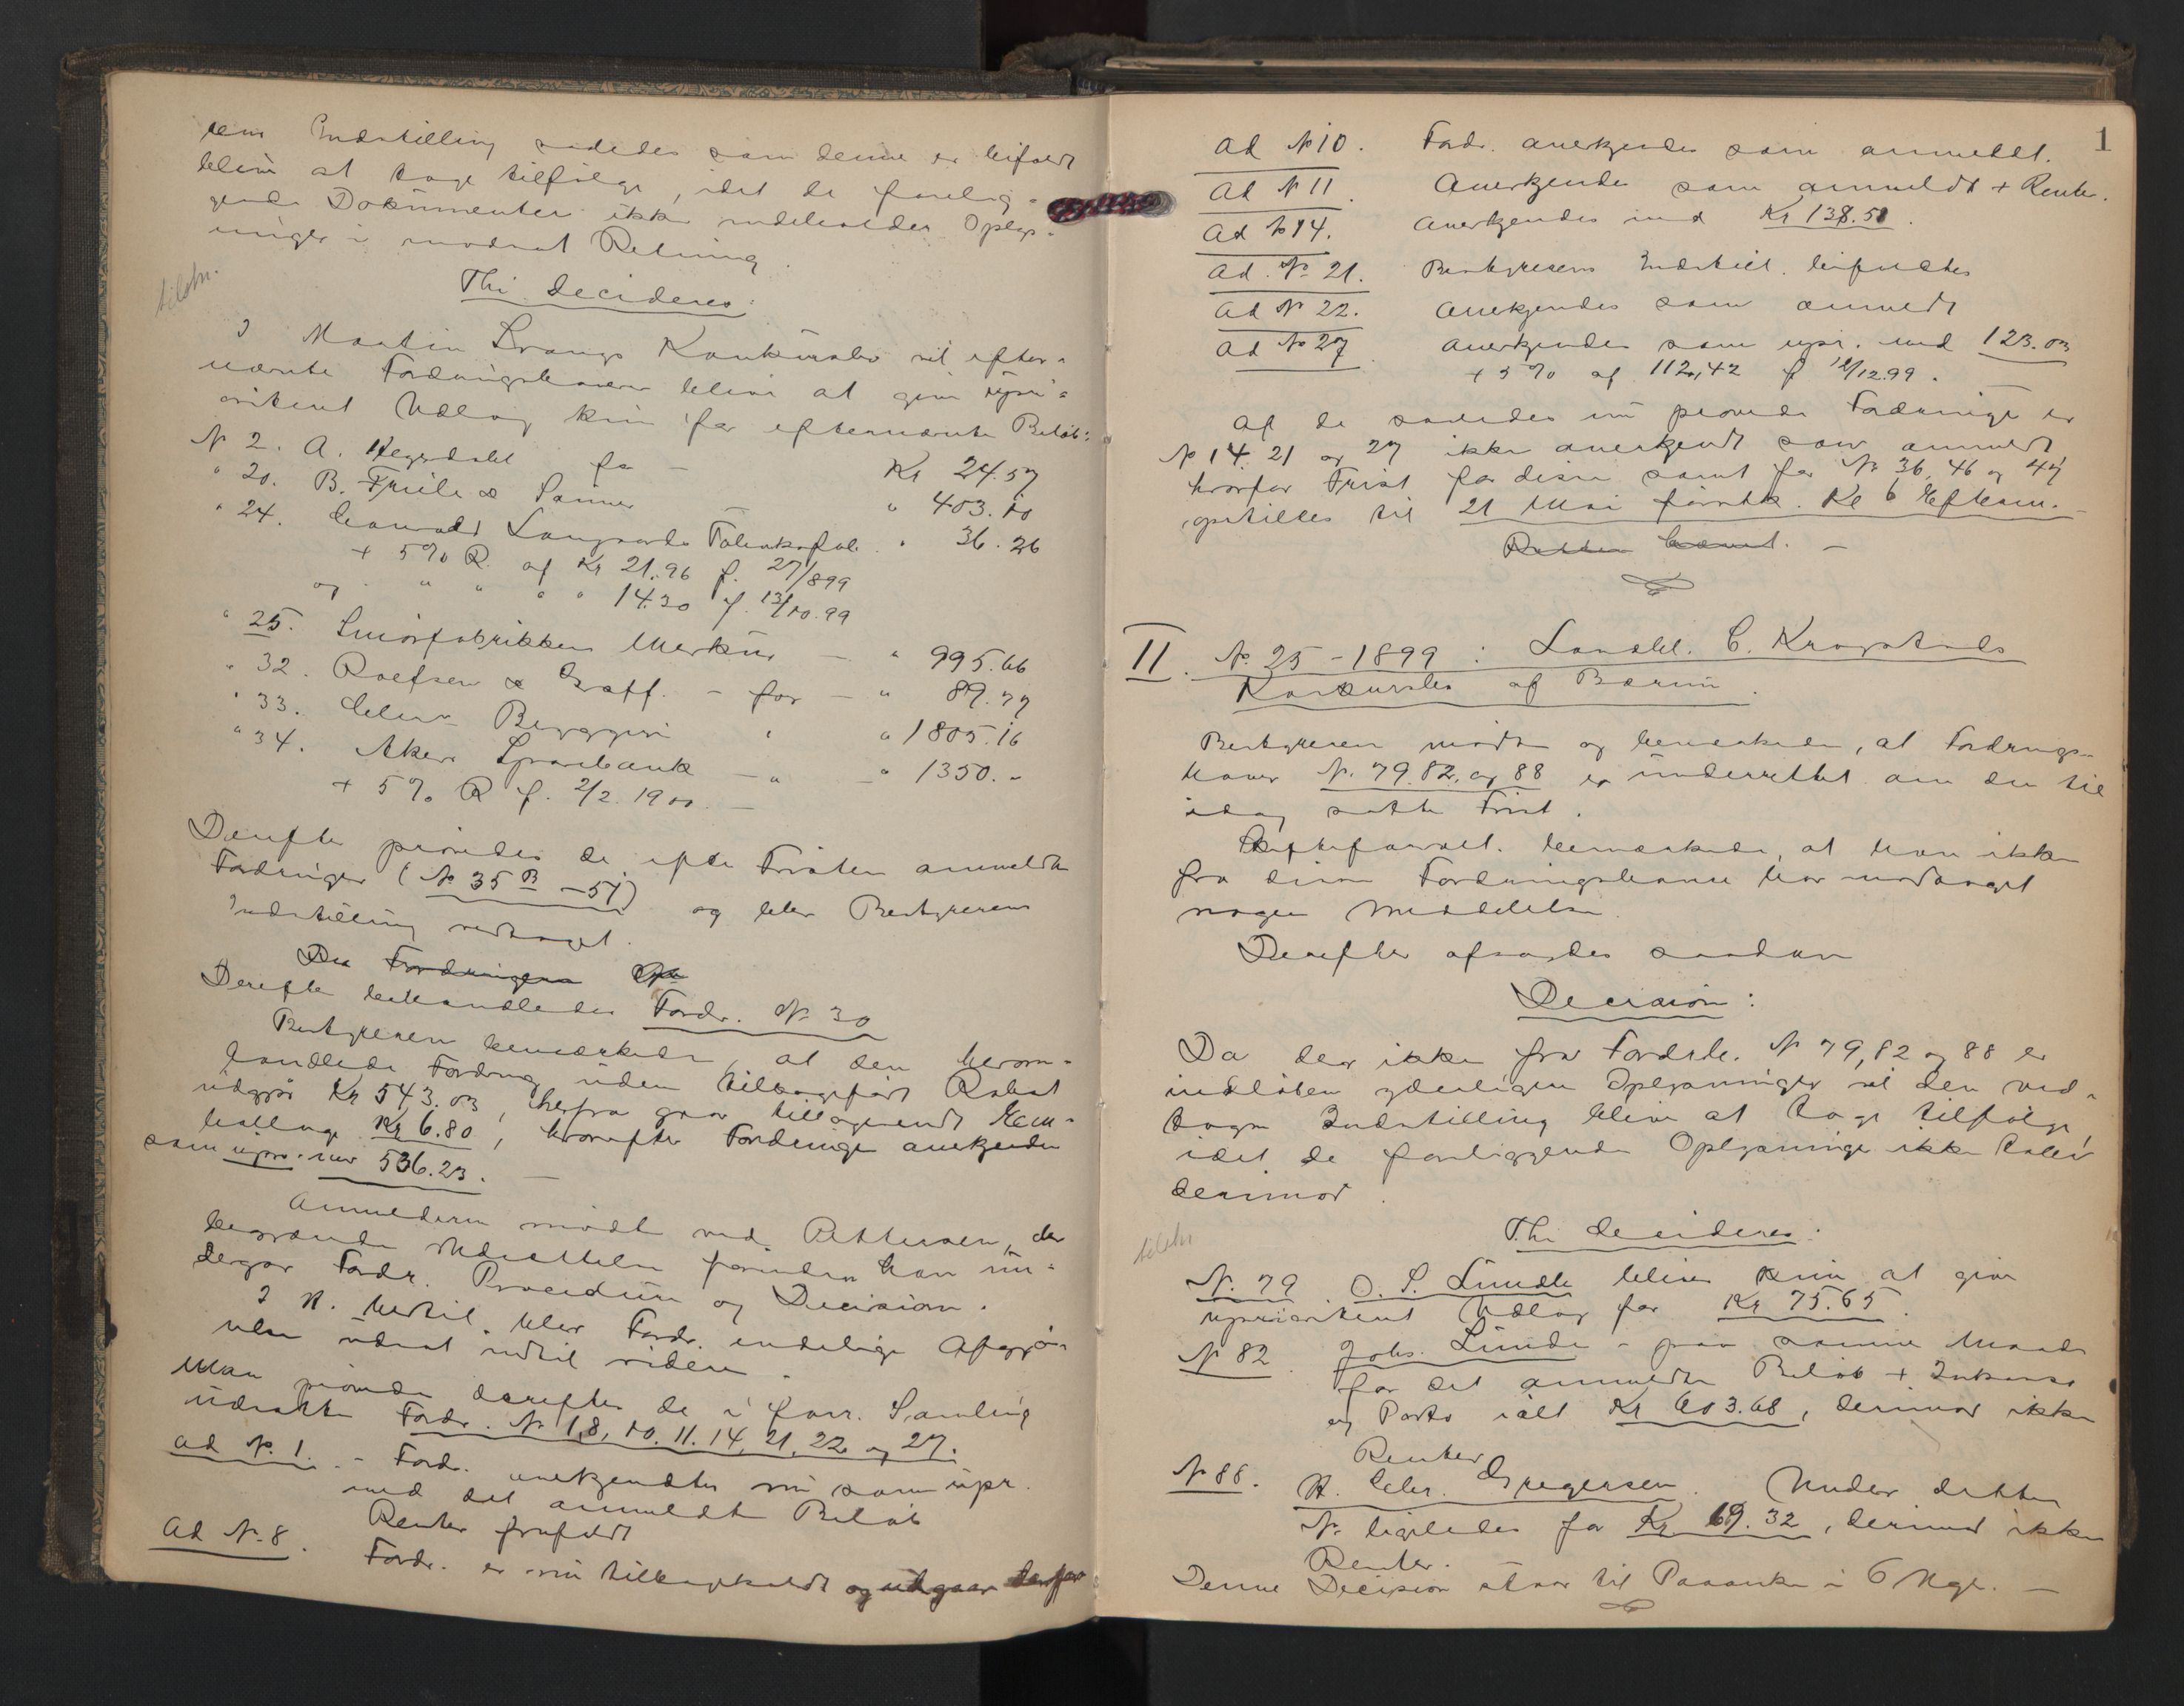 sens Indstilling saaledes som denne er bifaldt
blive at tage tilfølge, idet de forelig-
gende Documenter ikke indeholder Oplys-
ninger i modsat Retning.
Thi decideres:
I Martin Svangs Konkursbo vil efter-
nævnte Fordringshavere blive at give upri-
oriteret Udlæg kun for efternævnte Beløb:
No 2. A. Hegsdahl for - Kr 24.57
" 20. B. Friele & Sønner " 403.10
" 24. Conrad Langaards Tobaksfab. " 36.26
+ 5% R. af Kr 21.96 f. 27/8 99
og " " " " 14.30 f. 13/10.99
" 25. Smørfabrikken Merkur - " 995.66
" 32. Roefsen & Graff. - for - " 89.77
" 33. Bryggeri " " 1805.16
" 34. Akers Sparebank - " - " 1350.-
+ 5% R f. 2/2. 1900. -
Derefter prøvedes de efter Fristen anmeldte
Fordringer (No 35 B - 51) og blev Bestyrerens
Indstilling vedtaget.
Den Fordringen
Derefter behandledes Fordr. No 30
Bestyreren bemærkede, at den herom-
handlede Fordring uden tilbageført Rabat
udgjør Kr 543.03, herfra gaar tillagerende Em-
ballage Kr 6.80, hvorefter Fordringen anerkjendes
som upr. med 536.23. -
Anmelderen mødte ved Pettersen, der
begjærede Udsættelse forinden han un-
dergav Fordr. Procedure og Decision.
I H. hertil blev Fordr. endelige Afgjø-
relse udsat indtil videre.
Man prøvede derefter de i forr. Samling
udsatte Fordr. No 1, 8, 10. 11. 14, 21, 22 og 27.
ad No. 1. - Ford. anerkjendtes nu som upr.
med det anmeldte Beløb
Renter frafaldt
Ad No. 8. Fordr. er nu tilbagekaldt og udgaar derfor
1
ad No 10. Fordr. anerkjendes som anmeldt.
Ad No 11. Anerkjendes som anmeldt + Renter.
Ad No 14. Anerkjendes med Kr 138.58.
Ad. No 21. Bestyrerens Indstill. bifaldtes
Ad No 22. Anerkjendes som anmeldt
Ad No 27. Anerkjendes som upr. med 123.03
+ 5% af 112,42 f 12/12.99. -
Af de saaledes nu prøvede Fordringer er
No 14. 21 og 27 ikke anerkjendt som anmeldt
hvorfor Frist for disse samt for No 36, 46 og 47
opstilles til 21 Mai førstk. Kl 6 Efterm. -
Retten hævet. -
II. No. 25 - 1899: Landhl. C. Krogstads
Konkursbo af Bærum.
Bestyreren mødte og bemærkede, at Fordrings-
haver No. 79. 82. og 88 er underrettet om den til
idag satte Frist.
Skifteforvalt. bemærkede, at han ikke
fra disse Fordringshavere har modtaget
nogen Meddelelse.
Derefter afsagdes saadan
Decision:
Da der ikke fra Fordrh. No 79, 82 og 88 er
indløben yderligere Oplysninger vil den ved-
tagne Indstilling blive at tage tilfølge,
idet de foreliggende Oplysninger ikke taler
derimod.
Thi decideres:
No. 79 O. S. Lunde bliver kun at give
uprioriteret Udlæg for Kr 75.65.
No 82. Johs. Lunde - paa samme Maade
for det anmeldte Beløb + Inkasso
og Porto ialt Kr 603.68, derimod ikke
Renter
No 88. H. Chr. Gregersen. Under dette
No. ligeledes for Kr 69.32, derimod ikke
Renter.
Denne Decision staar til Paaanke i 6 Uger. -